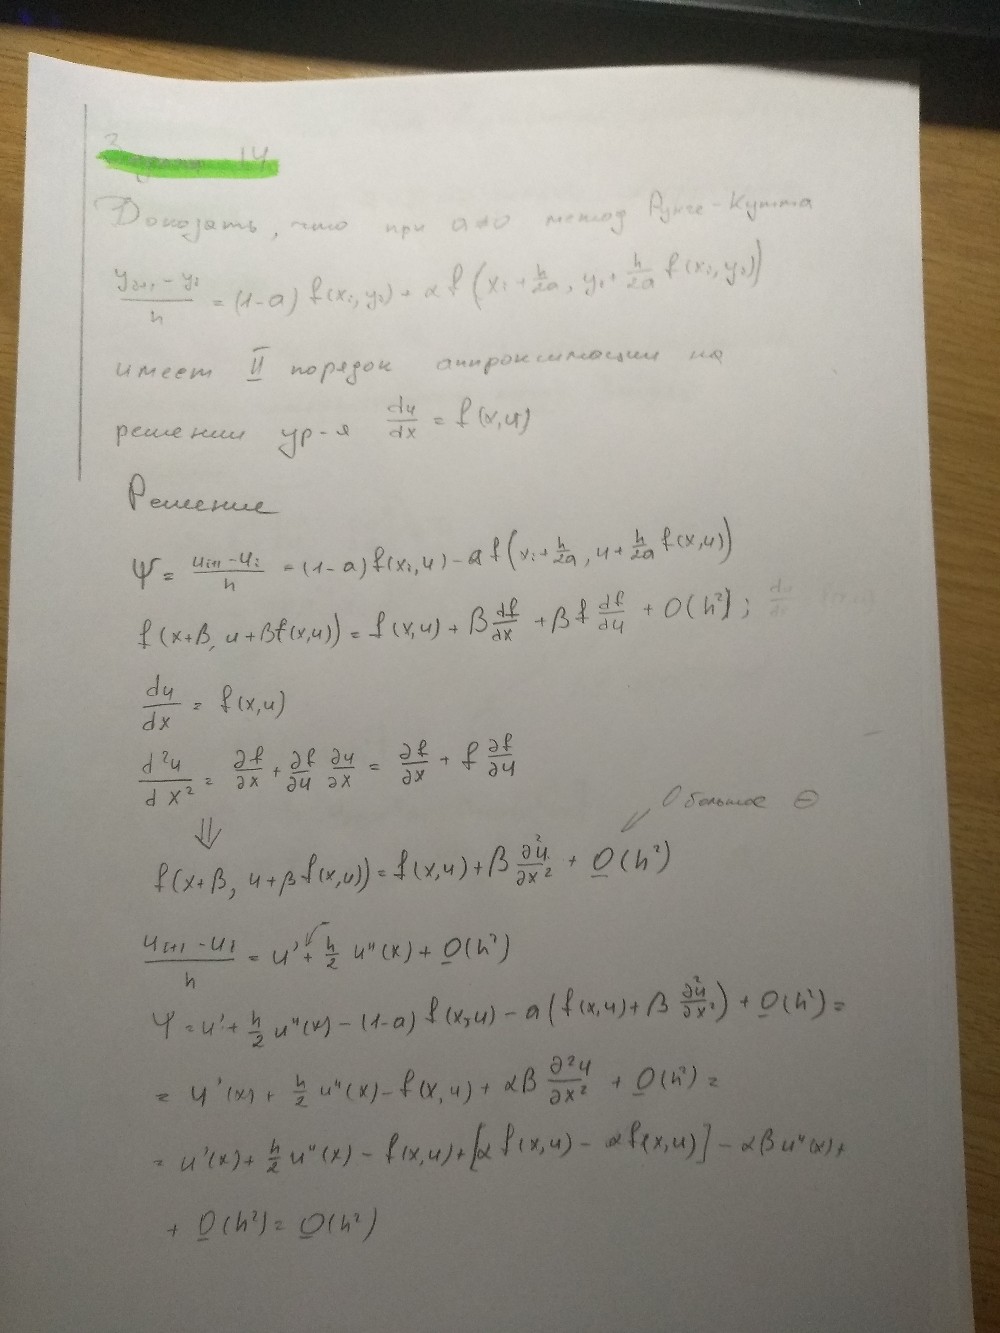 Задача 14
Доказать, что при a≠0 метод Рунге-Кутта
(y_{i+1} - y_i)/h = (1-a) f(x_i, y_i) + a f(x_i + h/2a, y_i + h/2a f(x_i, y_i))
имеет II порядок аппроксимации на
решении ур-я du/dx = f(x,u)
Решение
Ψ = (u_{i+1} - u_i)/h = (1-a) f(x_i, u) - a f(x_i + h/2a, u + h/2a f(x,u))
f(x+β, u+βf(x,u)) = f(x,u) + β df/dx + βf df/du + O(h²);
du/dx = f(x,u)
d²u/dx² = ∂f/∂x + ∂f/∂u ∂u/∂x = ∂f/∂x + f ∂f/∂u
О большое ⊖
⇓
f(x+β, u+βf(x,u)) = f(x,u) + β ∂²u/∂x² + O(h²)
(u_{i+1} - u_i)/h = u' + h/2 u''(x) + O(h²)
Ψ = u' + h/2 u''(x) - (1-a) f(x,u) - a(f(x,u) + β ∂²u/∂x²) + O(h²) =
= u'(x) + h/2 u''(x) - f(x,u) + aβ ∂²u/∂x² + O(h²) =
= u'(x) + h/2 u''(x) - f(x,u) + [a f(x,u) - a f(x,u)] - aβ u''(x) +
+ O(h²) = O(h²)